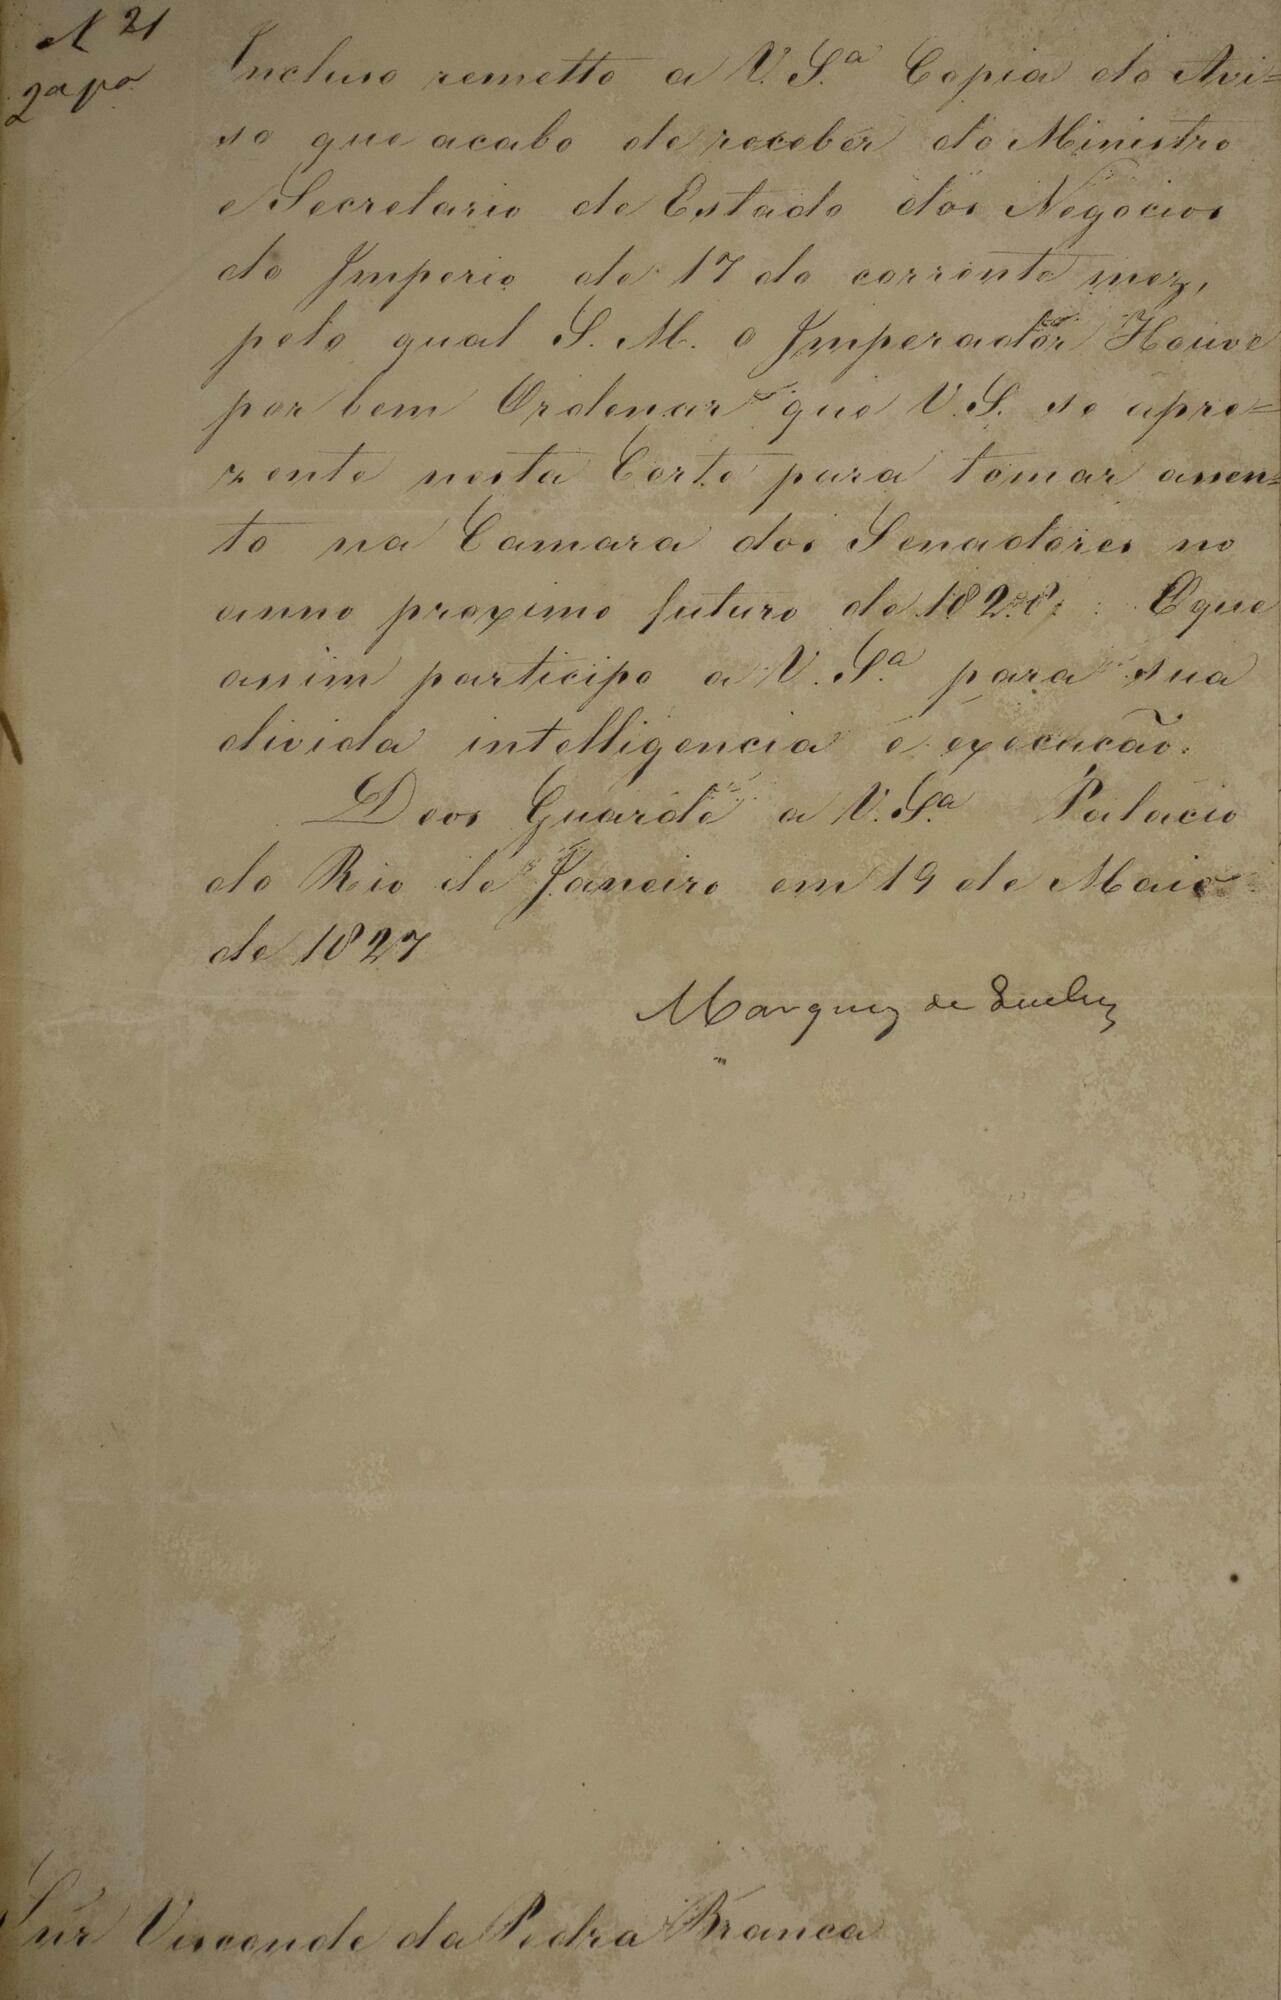 N 21
2a pa
Incluso remetto a V. S.ª Copia do Avi=
so que acabo de receber do Ministro
e Secretario de Estado dos Negocios
do Imperio de 17 do corrente mez,
pelo qual S. M. o Imperador Houve
por bem Ordenar que V. S. se apre=
zente nesta Corte para tomar assen=
to na Camara dos Senadores no
anno proximo futuro de 1828: O que
assim participo a V. S.ª para sua
divida intelligencia e execucão.
Deos Guarde a V. S.ª Palacio
do Rio de Janeiro em 19 de Maio
de 1827
Marquez de Queluz
Snr Visconde da Pedra Branca